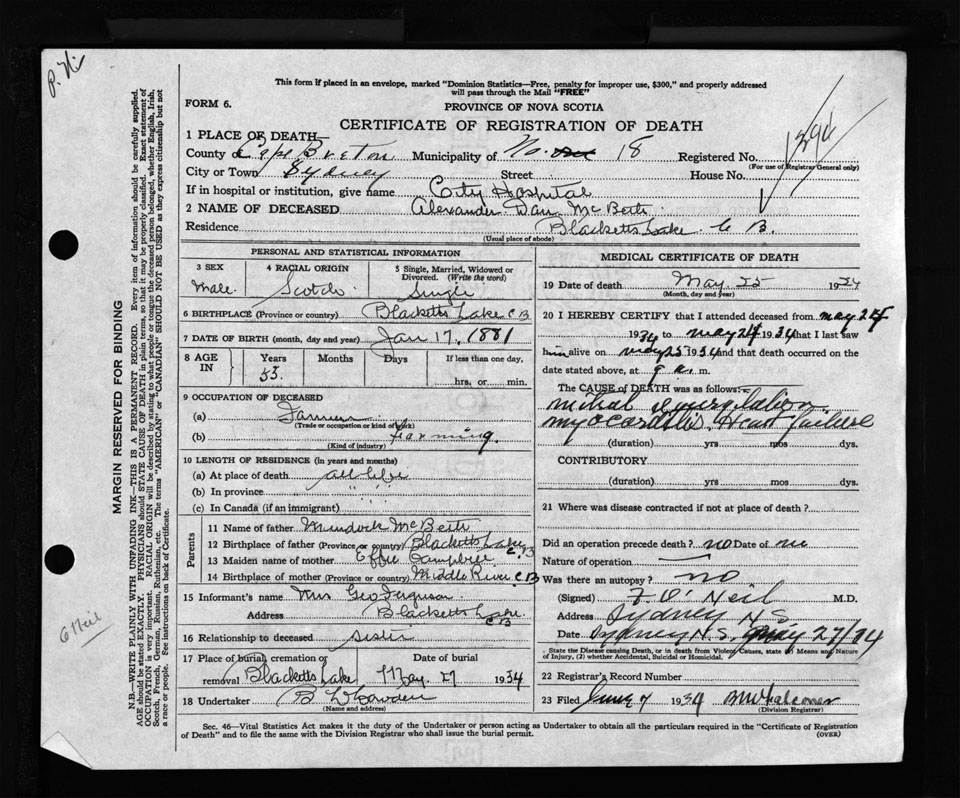 P. N.
This form if placed in an envelope, marked "Dominion Statistics—Free, penalty for improper use, $300," and properly addressed
will pass through the Mail "FREE"
FORM 6.
PROVINCE OF NOVA SCOTIA
CERTIFICATE OF REGISTRATION OF DEATH
1 PLACE OF DEATH—
County of Cape Breton Municipality of No. 18 Registered No.
(For use of Registrar General only)
City or Town Sydney Street House No.
If in hospital or institution, give name City Hospital
2 NAME OF DECEASED Alexander Dan McBeth
Residence Blacketts Lake C B.
(Usual place of abode)
PERSONAL AND STATISTICAL INFORMATION
3 SEX 4 RACIAL ORIGIN 5 Single, Married, Widowed or
Divorced. (Write the word)
Male Scotch Single
6 BIRTHPLACE (Province or country) Blacketts Lake C B
7 DATE OF BIRTH (month, day and year) Jan 17, 1881
8 AGE IN Years Months Days If less than one day,
53. hrs. or min.
9 OCCUPATION OF DECEASED
(a) Farmer
(Trade or occupation or kind of work)
(b) farming.
(Kind of industry)
10 LENGTH OF RESIDENCE (in years and months)
(a) At place of death all life
(b) In province " "
(c) In Canada (if an immigrant) " "
Parents
11 Name of father Murdock McBeth
12 Birthplace of father (Province or country) Blacketts Lake C.B
13 Maiden name of mother Effie Campbell
14 Birthplace of mother (Province or country) Middle River C B
15 Informant's name Mrs Geo Ferguson
Address Blacketts Lake C B
16 Relationship to deceased Sister
17 Place of burial, cremation or Date of burial
removal Blacketts Lake May 27 1934
18 Undertaker
(Name and address)
MEDICAL CERTIFICATE OF DEATH
19 Date of death May 25 1934
(Month, day and year)
20 I HEREBY CERTIFY that I attended deceased from may 24
1934 to may 24 1934 that I last saw
him alive on may 25 1934 and that death occurred on
date stated above, at 9 a. m.
The CAUSE OF DEATH was as follows:—
mitral regurgitation.
myocarditis. Heart failure
(duration) yrs mos dys.
CONTRIBUTORY
(duration) yrs mos dys.
21 Where was disease contracted if not at place of death?
Did an operation precede death? no Date of
Nature of operation
Was there an autopsy? no
(Signed) F O'Neil M.D.
Address Sydney N.S.
Date Sydney N.S. May 27/34
State the Disease causing Death, or in death from Violent Causes, state (1) Means and Nature
of Injury, (2) whether Accidental, Suicidal or Homicidal.
22 Registrar's Record Number
23 Filed June 7 1934
(Division Registrar)
Sec. 46—Vital Statistics Act makes it the duty of the Undertaker or person acting as Undertaker to obtain all the particulars required in the "Certificate of Registration
of Death" and to file the same with the Division Registrar who shall issue the burial permit.
(OVER)
MARGIN RESERVED FOR BINDING
N.B.—WRITE PLAINLY WITH UNFADING INK—THIS IS A PERMANENT RECORD. Every item of information should be carefully supplied.
AGE should be stated EXACTLY. PHYSICIANS should STATE CAUSE OF DEATH in plain terms, so that it may be properly classified. Exact statement of
OCCUPATION is very important. RACIAL ORIGIN will be described by stating to what people or tongue the deceased person belonged, whether English, Irish,
Scotch, French, German, Russian, Ruthenian, etc. The terms "AMERICAN" or "CANADIAN" SHOULD NOT BE USED as they express citizenship but not
a race or people. See instructions on back of Certificate.
O'Neil